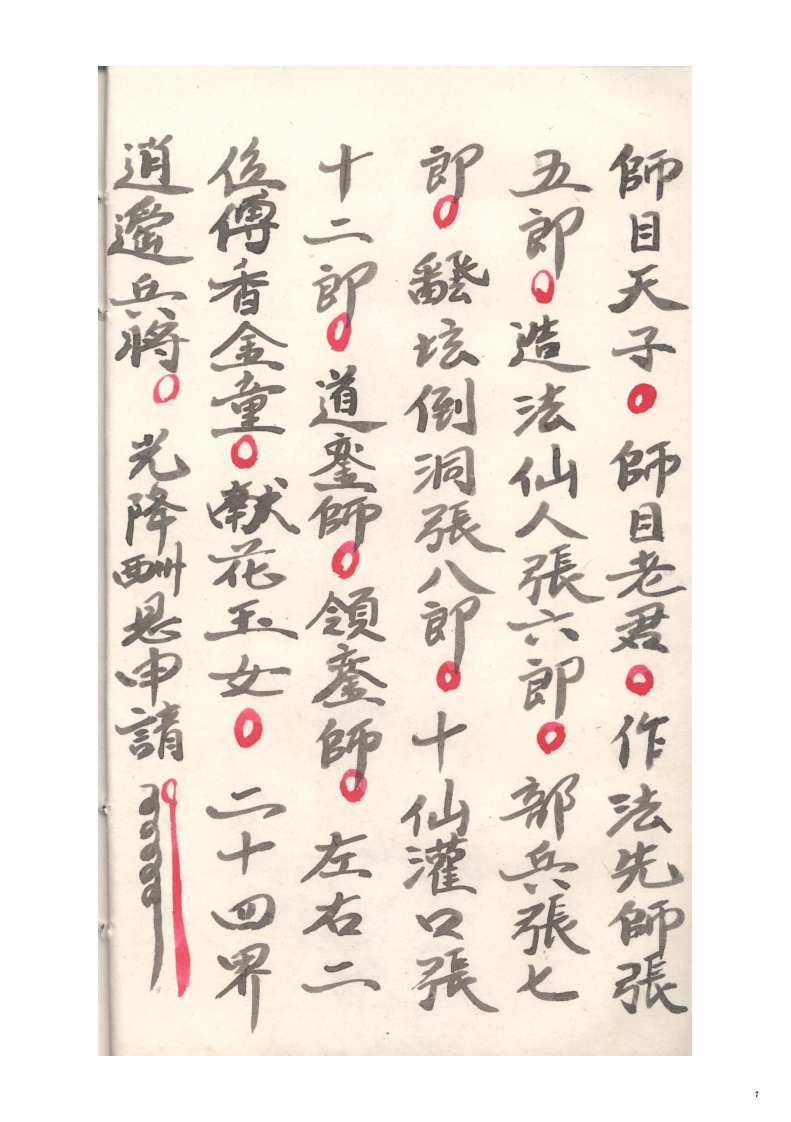 師目天子○師目老君○作法先師張
五郎○造法仙人張六郎○部兵張七
郎○飜坛倒洞張八郎○十仙灌口張
十二郎○道銮師○領銮師○左右二
位傳香金童○献花玉女○二十四界
逍遥兵將○光降酬恩申請
7